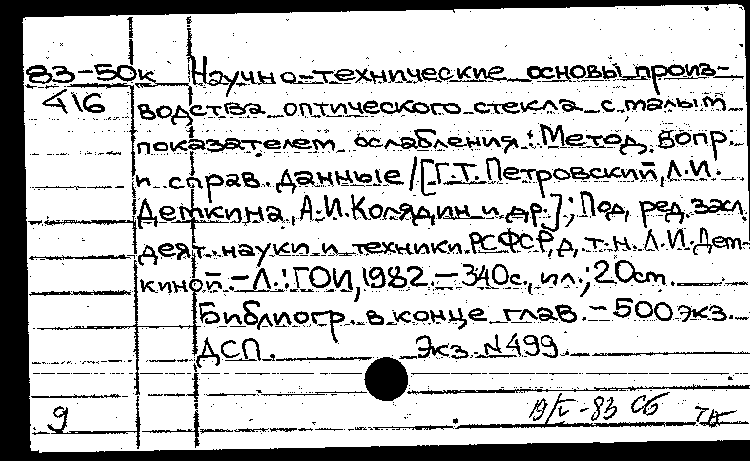 83-50к Научно-технические основы произ-
416 водства оптического стекла с малым
показателем ослабления: Метод. вопр.
и справ. данные/[Г.Т. Петровский, Л.И.
Деткина, А.И. Колядин и др.]; Под ред. засл.
деят. науки и техники РСФСР, д.т.н. Л.И. Дет-
киной. - Л.: ГОИ, 1982. - 340с., ил.; 20см.
Библиогр. в конце глав. - 500 экз.
ДСП. Экз. N499.
9 19/V-83 Сб